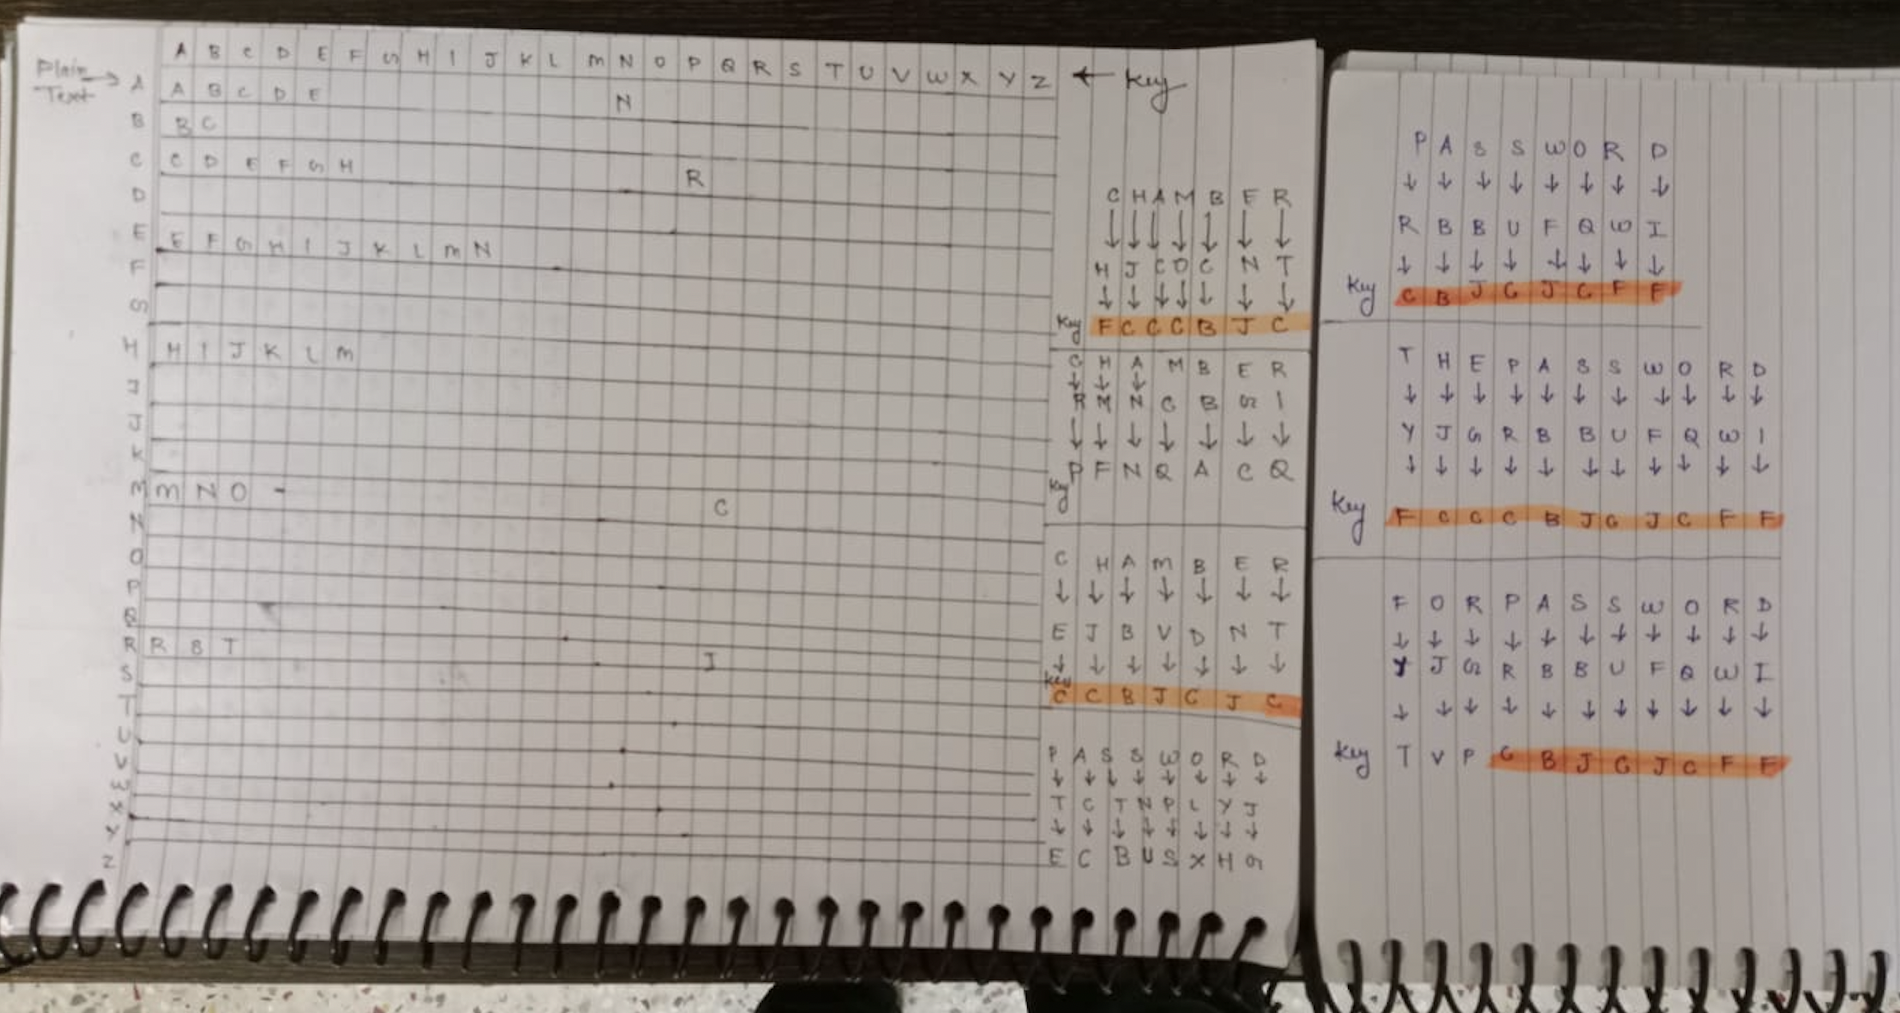 A B C D E F G H I J K L M N O P Q R S T U V W X Y Z ← Key
Plain Text →
A A B C D E N
B B C
C C D E F G H R
D
E E F G H I J K L M N
F
G
H H I J K L M
I
J
K
M M N O - C
N
O
P
Q
R R S T J
S
T
U
V
W
X
Y
Z
C H A M B E R
H J C O C N T
Key F C C C B J C
C H A M B E R
R M N C B G I
Key P F N Q A C Q
C H A M B E R
E J B V D N T
Key C C B J C J C
P A S S W O R D
T C T N P L Y J
E C B U S X H G
P A S S W O R D
R B B U F Q W I
Key C B J C J C F F
T H E P A S S W O R D
Y J G R B B U F Q W I
Key F C C C B J C J C F F
F O R P A S S W O R D
Y J G R B B U F Q W I
Key T V P C B J C J C F F